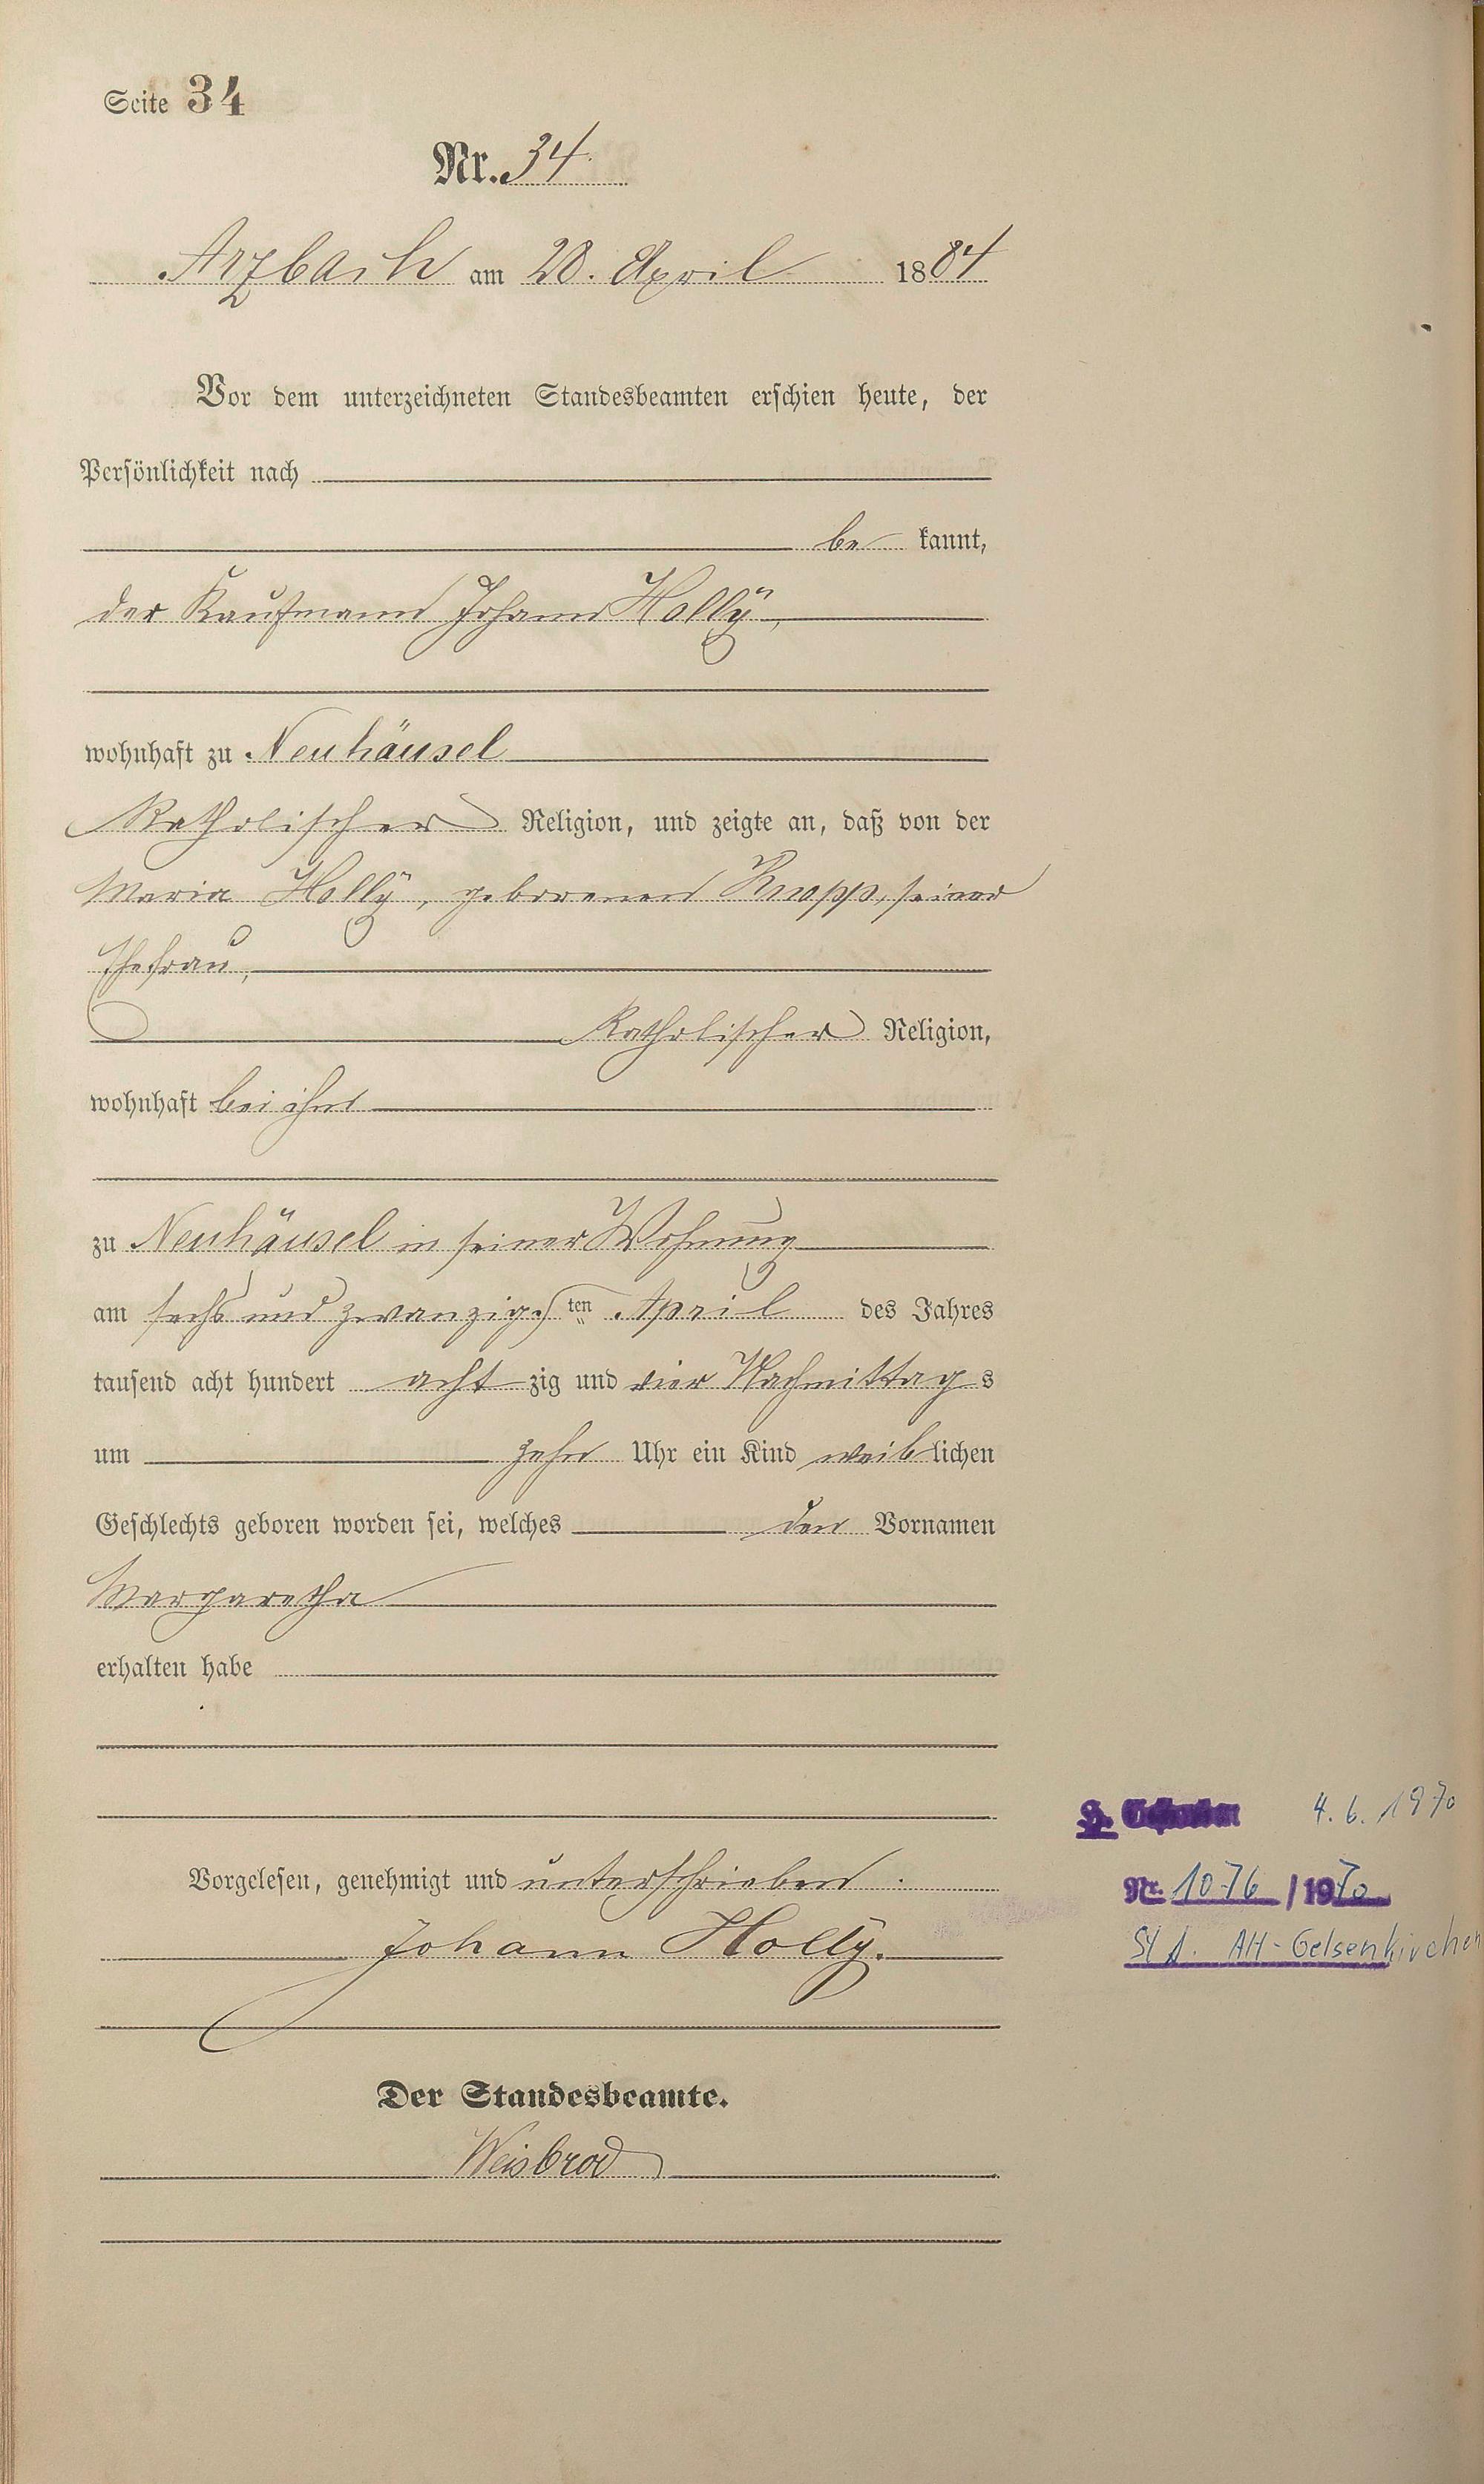 Seite 34
Nr. 34.
Arzbach am 28. April 1884
Vor dem unterzeichneten Standesbeamten erschien heute, der
Persönlichkeit nach
be kannt,
der Kaufmann Johann Hollÿ,
wohnhaft zu Neuhäusel
katholischer Religion, und zeigte an, daß von der
Maria Hollÿ, geborenen Knopp, seiner
Ehefrau,
katholischer Religion,
wohnhaft bei ihm
zu Neuhäusel in seiner Wohnung
am sechs und zwanzigs ten April des Jahres
tausend acht hundert acht zig und vier Nachmittag s
um zehn Uhr ein Kind weib lichen
Geschlechts geboren worden sei, welches den Vornamen
Margaretha
erhalten habe
Vorgelesen, genehmigt und unterschrieben.
Johann Hollÿ.
Der Standesbeamte.
Weisbrod
4.6.1970
Nr. 1076 / 1970
StA. AH-Gelsenkirchen